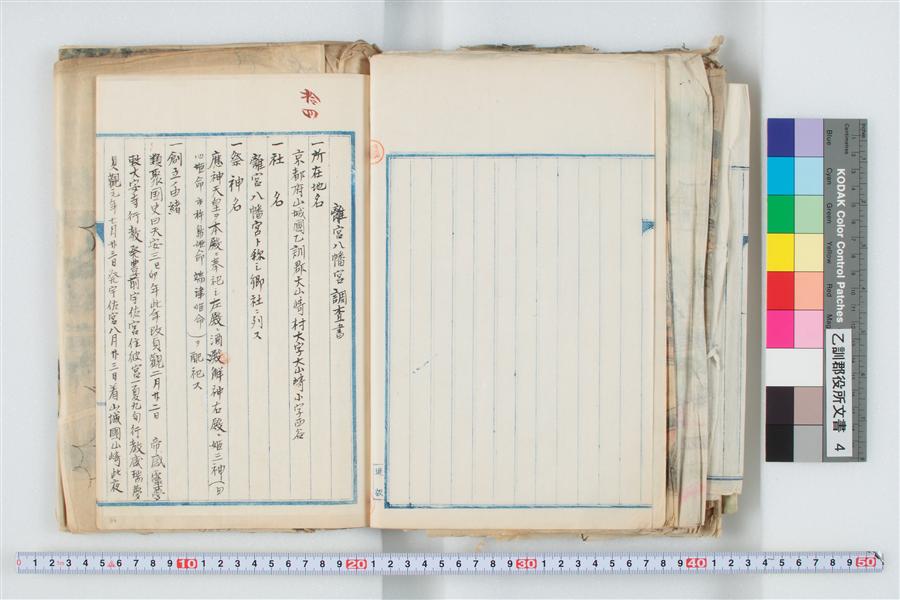 拾四
離宮八幡宮調査書
一所在地名
京都府山城國乙訓郡大山崎村大字大山崎小字西谷
一社名
離宮八幡宮ト称シ郷社ニ列ス
一祭神名
應神天皇ヲ本殿ニ奉祀シ左殿ニ酒解神右殿ニ姫三神(田
心姫命 市杵島姫命 湍津姫命)ヲ配祀ス
一創立由緒
類聚国史曰天安三己卯年此年改貞觀二月廿二日 帝感靈夢
敕大字寺行教発豊前宇佐宮住彼宮一夏九旬行教感瑞夢
貞觀元年七月廿三日発宇佐宮八月廿三日着山城國山崎此夜
KODAK Color Control Patches
Blue
Cyan
Green
Yellow
Red
Centimetres
乙訓郡役所文書 4
1 2 3 4 5 6 7 8 9 10 1 2 3 4 5 6 7 8 9 20 1 2 3 4 5 6 7 8 9 30 1 2 3 4 5 6 7 8 9 40 1 2 3 4 5 6 7 8 9 50